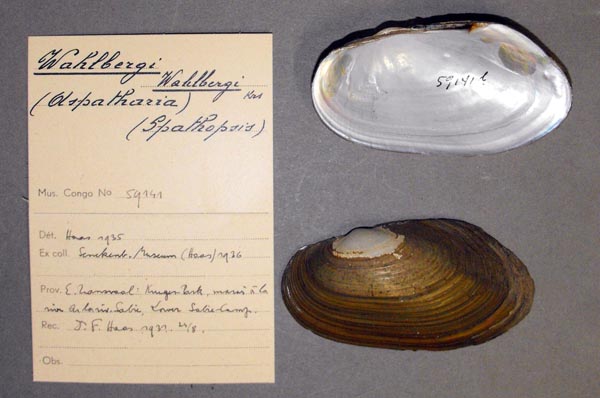 Wahlbergi
Wahlbergi Krs
(Aspatharia)
(Spathopsis)
Mus. Congo No 59141
Dét. Haas 1935
Ex coll. Senckenb. Museum (Haas) 1936
Prov. E. Transvaal: Kruger Park, marais à la
Sabie, Lower Sabie Camp.
Rec. D. F. Haas 1931. 22/8.
Obs.
59141 b